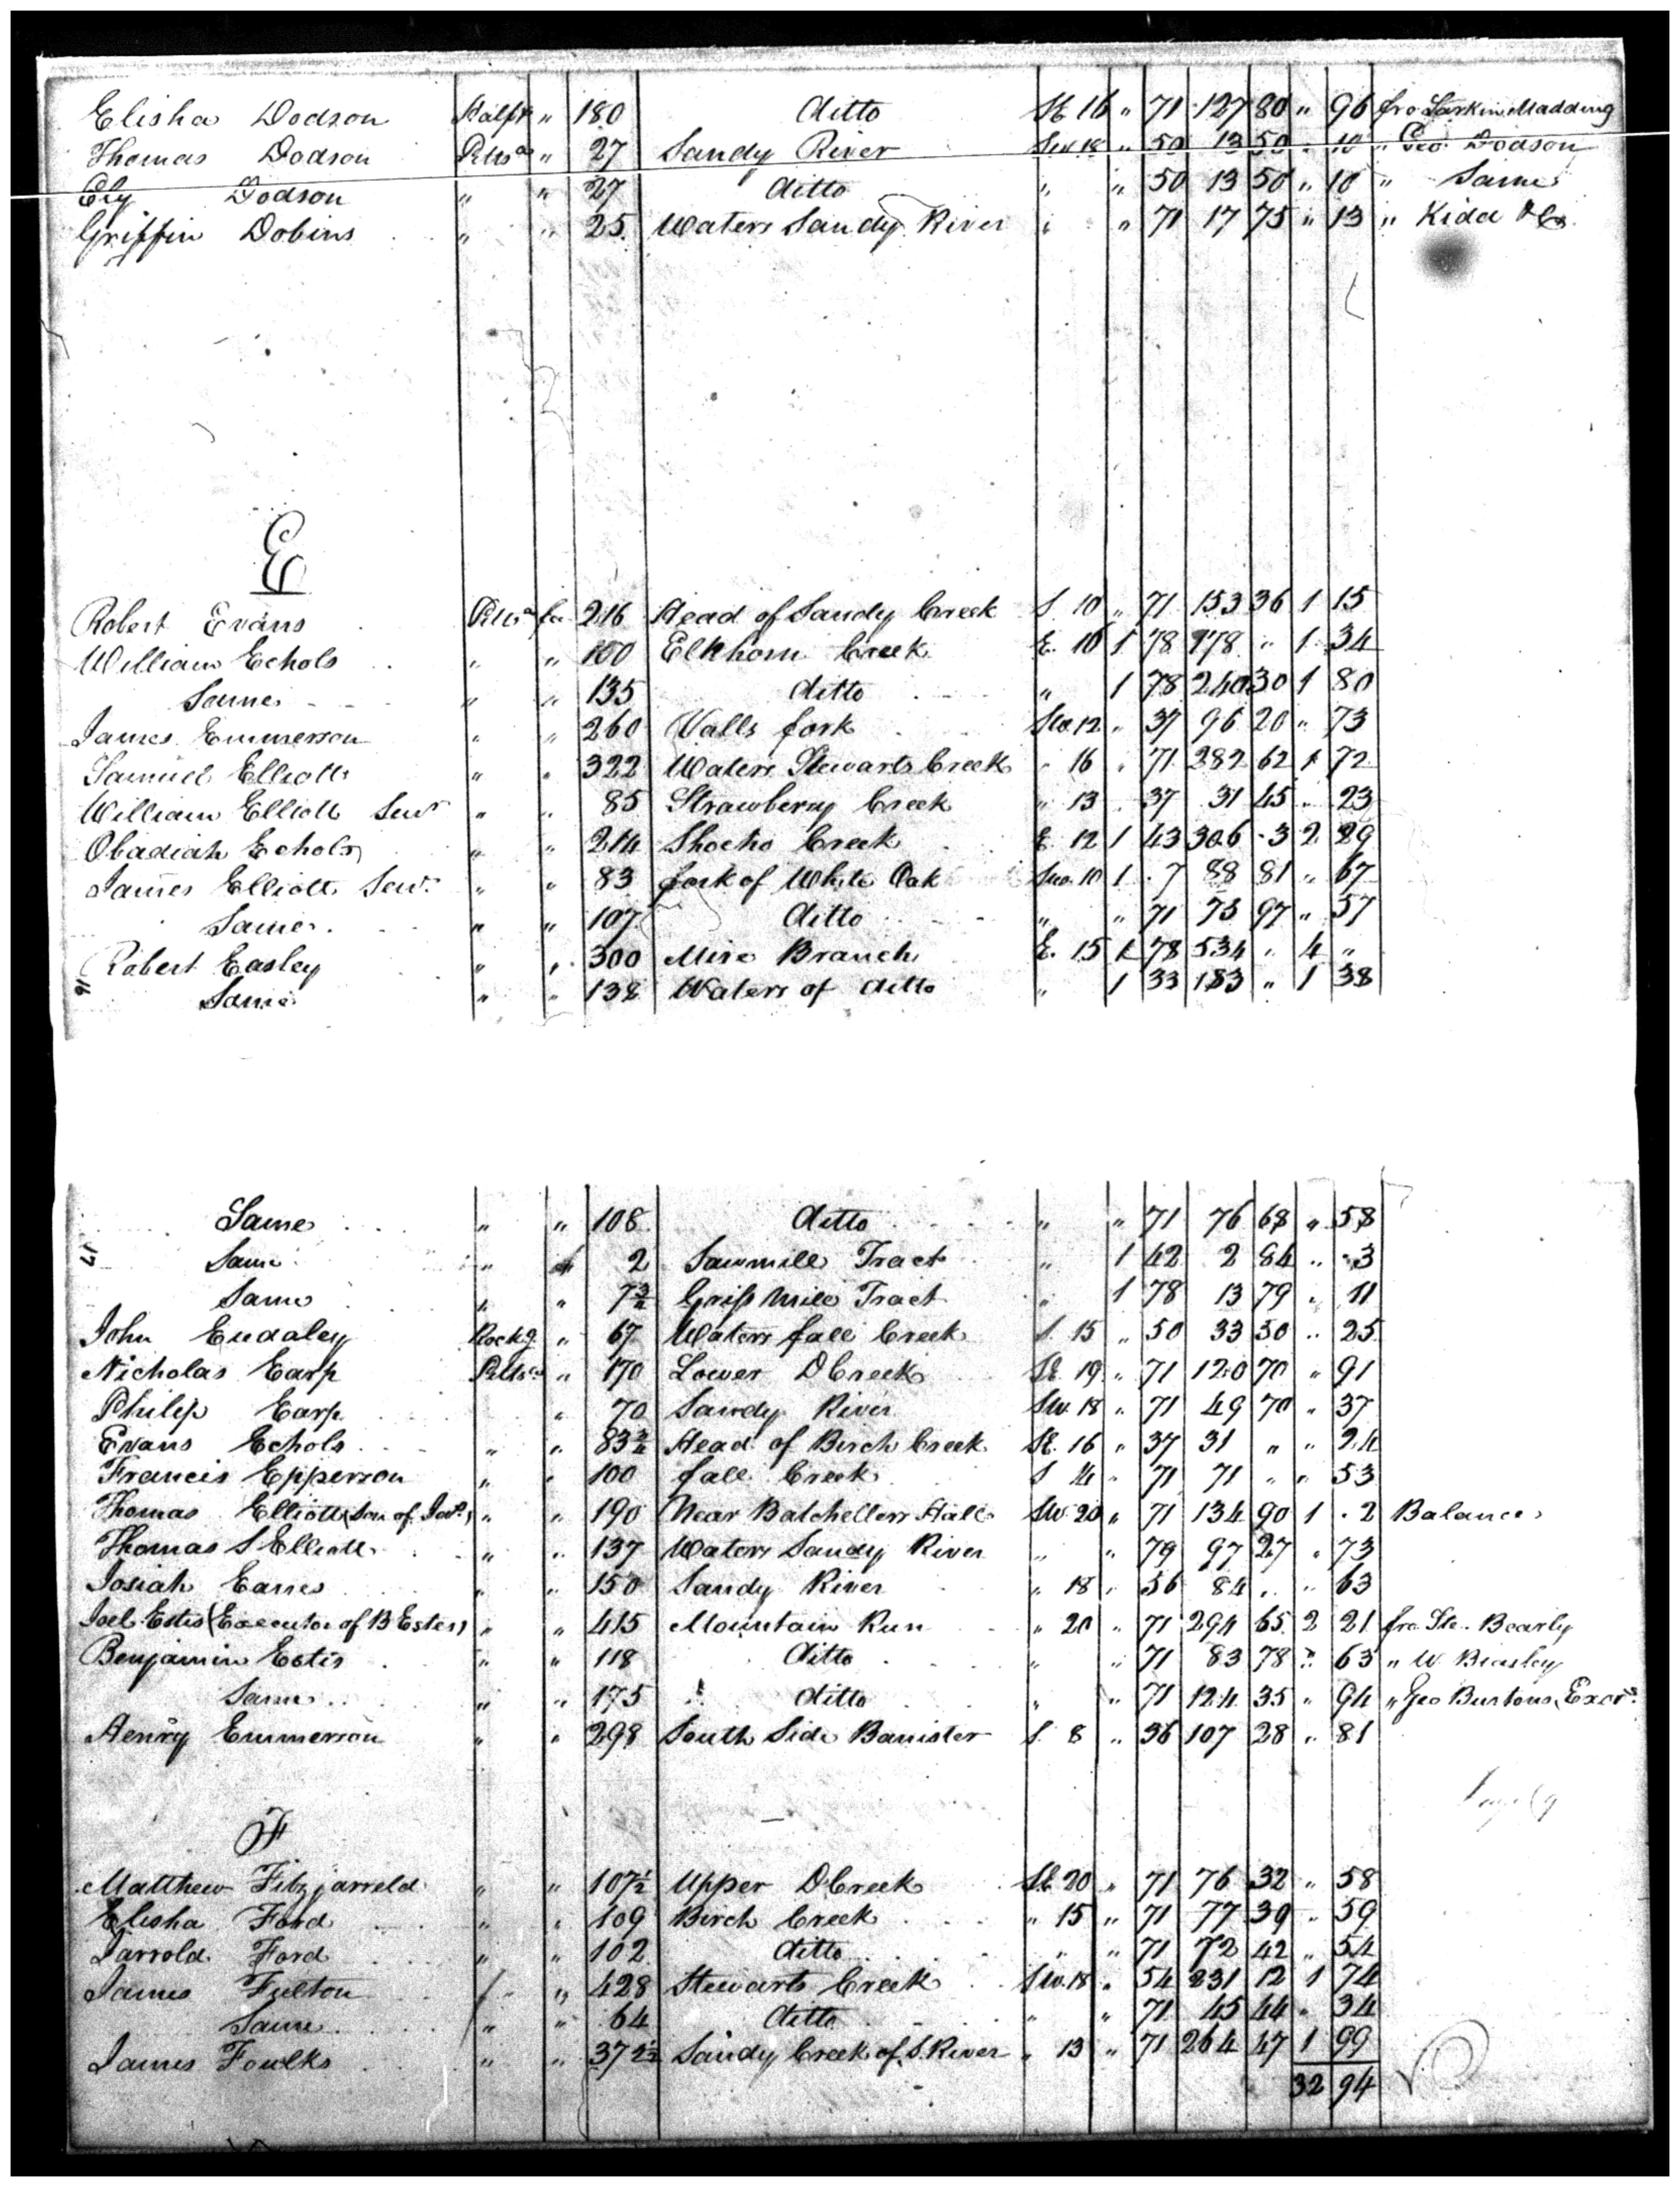 Elisha Dodson Halifx " 180 Ditto SE 16 " 71 127 80 " 96 fro Larkin Madding
Thomas Dodson Pittsa " 27 Sandy River SW 18 " 50 13 50 " 10 " Geo Dodson
Ely Dodson " " 27 Ditto " " 50 13 50 " 10 " Same
Griffin Dobins " " 25 Waters Sandy River " " 71 17 75 " 13 " Kidd
E
Robert Evans Pittsa fee 216 Head of Sandy Creek S. 10 " 71 153 36 1 15
William Echols " " 100 Elkhorn Creek E. 10 1 78 178 " 1 34
Same " " 135 Ditto " 1 78 240 30 1 80
James Emmerson " " 260 Valls fork SW 12 " 37 96 20 " 73
Samuel Elliott " " 322 Waters Stewarts Creek " 16 " 71 282 62 1 72
William Elliott Senr " " 85 Strawberry Creek " 13 " 37 31 45 " 23
Obadiah Echols " " 214 Shocko Creek E. 12 1 43 306 3 2 29
James Elliott Senr " " 83 fork of White Oak SW. 10 1 7 88 81 " 67
Same " " 107 Ditto " " 71 75 97 " 57
Robert Easley " " 300 Mire Branch E. 15 1 78 534 " 4 "
16 Same " " 138 Waters of ditto " 1 33 183 " 1 38
Same " " 108 Ditto " " 71 76 68 " 58
17 Same " " 2 Sawmill Tract " 1 42 2 84 " 3
Same " " 7 3/4 Grist Mill Tract " 1 78 13 79 " 11
John Eudaley Rockg. " 67 Waters fall Creek S. 15 " 50 33 50 " 25
Nicholas Earp Pittsa " 170 Lower D Creek SE. 19 " 71 120 70 " 91
Philip Earp " 70 Sandy River SW. 18 " 71 49 70 " 37
Evans Echols " " 83 3/4 Head of Birch Creek SE. 16 " 37 31 " " 24
Francis Epperson " " 100 fall Creek S 14 " 71 71 " " 53
Thomas Elliott (son of Jno) " " 190 Near Batchellers Hall SW. 20 " 71 134 90 1 2 Balance
Thomas S Elliott " " 137 Waters Sandy River " " 79 97 27 " 73
Josiah Eanes " " 150 Sandy River " 18 " 56 84 " " 63
Joel Estes (Executor of B Estes) " " 415 Mountain Run " 20 " 71 294 65 2 21 fro Ste. Bearly
Benjamin Estis " " 118 Ditto " " 71 83 78 " 63 " W Beasley
Same " " 175 ditto " " 71 124 35 " 94 " Geo Burtons Excrs
Henry Emmerson " " 298 South Side Banister S. 8 " 36 107 28 " 81
F
Matthew Fitzjarreld " " 107 1/2 Upper D Creek SE 20 " 71 76 32 " 58
Elisha Ford " " 109 Birch Creek " 15 " 71 77 39 " 59
Jarrold Ford " " 102 Ditto " " 71 72 42 " 54
James Fulton " " 428 Stewarts Creek SW. 18 " 54 231 12 1 74
Same " " 64 Ditto " " 71 45 44 " 34
James Foulks " " 372 1/2 Sandy Creek of S. River " 13 " 71 264 47 1 99
32 94